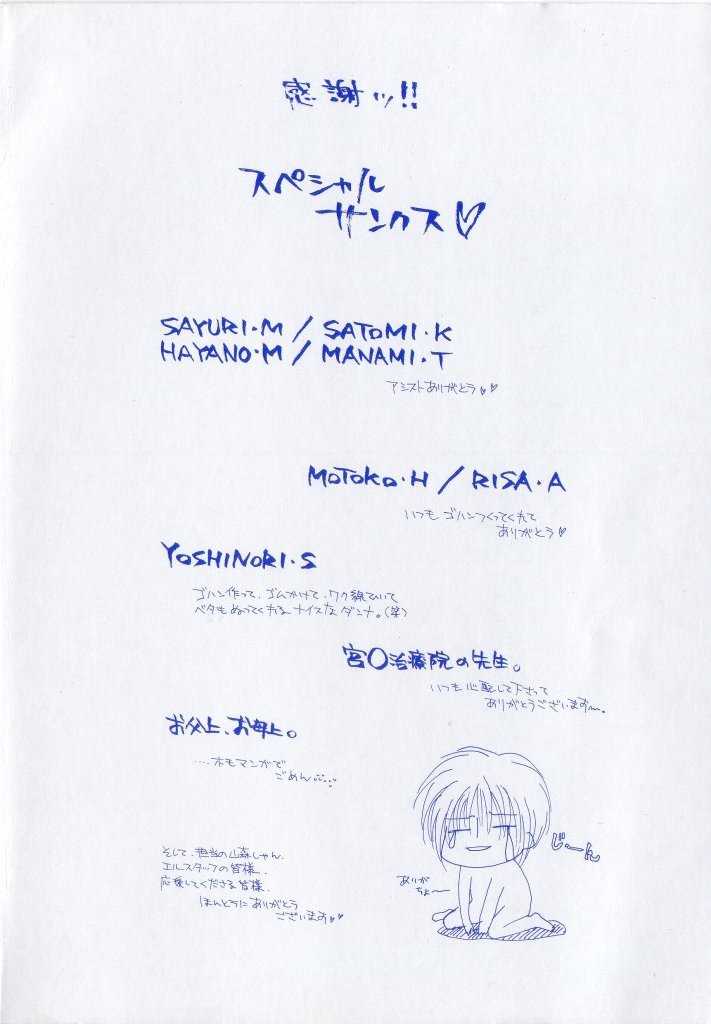 感謝ッ!!
スペシャル
サンクス♡
SAYURI・M / SATOMI・K
HAYANO・M / MANAMI・T
アシストありがとう♡♡
MOTOKO・H / RISA・A
いつもゴハンつくってくれて
ありがとう♡
YOSHINORI・S
ゴハン作って、ゴムかけて、ワク線ひいて
ベタもぬってくれるナイスなダンナ。(笑)
宮○治療院の先生。
いつも心配して下さって
ありがとうございます〜。
お父上、お母上。
‥‥ホモマンガで
ごめん
そして、担当の山森しゃん、
エルスタッフの皆様、
応援してくださる皆様、
ほんとうにありがとう
ございます♡♡
じーん
ありが
ちょー